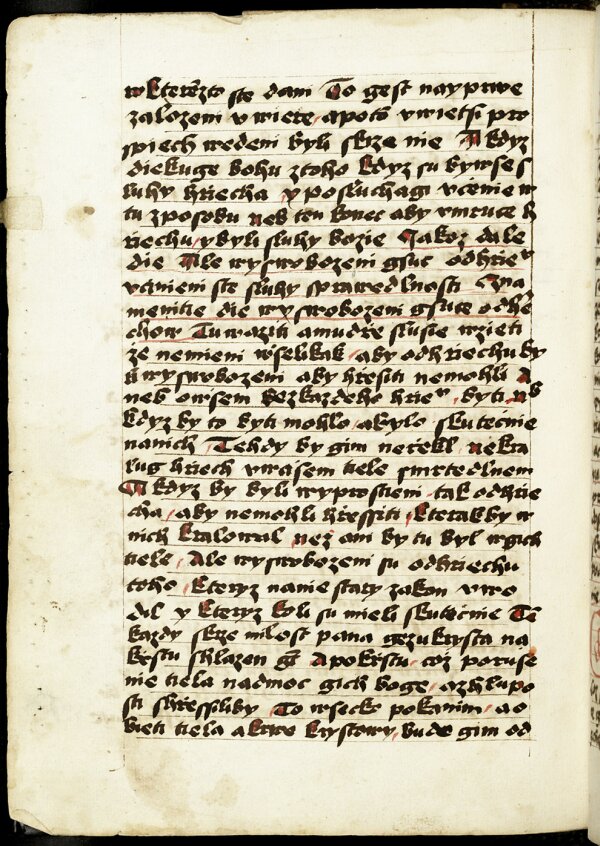 w kterezto ste dani To gest nayprwe
zalozeni v wiere, apotō v wietsi pro
spiech wedeni byli skrze nie A kdyz
diekuge bohu ztoho kdyz su bywse s
luhy hriecha y posluchagi vcenie w
tu zposobu neb ten konec aby vmruce h
riechu, y byli sluhy bozie Jakoz dale
die Ale wyswobozeni gsuc od hrie
vcinieni ste sluhy sprawedlnosti Zna
menitie die wyswobozeni gsuce od he
chow Tu waziti a mudre slusie wzieti
ze nemieni wselikak, aby od hriechu by
li wyswobozeni aby hresiti nemohli A
neb owsem bez kazdeho hrie, byti neb
kdyz by to byti mohlo, abylo skutecnie
na nich, Tehdy by gim neriekl, nekra
lug hriech w wasem tiele smrtedlnem
A kdyz by byli wyprostieni, tak od hrie
cha, aby nemohli hressiti, kterak by w
nich kralowal, nez ani by tu byl w gich
tiele, Ale wyswobozeni su od hriechu
toho, kteryz na nie stary zakon vwo
dil y kteryz koli su mieli skutecnie Tē
kazdy skrze milost pana gezukrysta na
krstu shlazen gt A po krstu, coz poruse
nie tiela nad moc gich boge, a z hlupo
sti shressiliby To wsecko pokanim, a o
bieti tiela a krwe krystowy, bude gim od